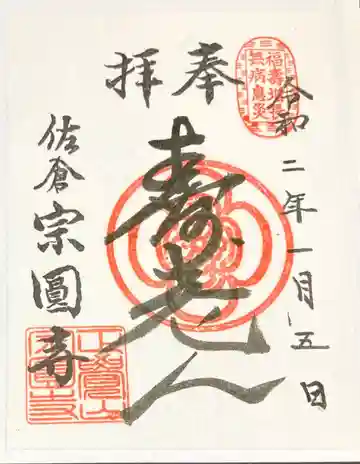 令和二年一月五日
奉拝
福壽増長
無病息災
壽老人
佐倉宗圓寺